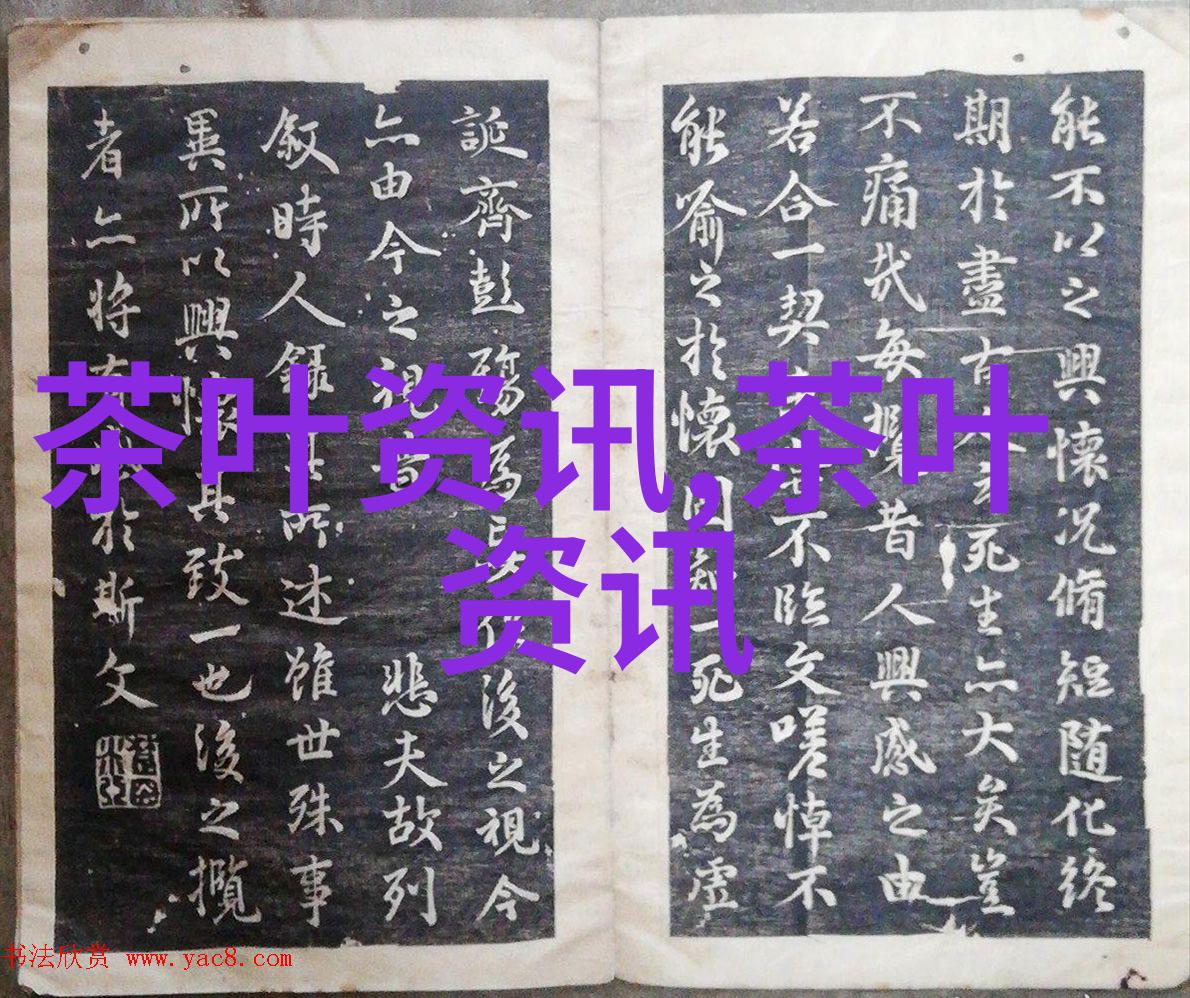 能不以之興懷况脩短随化終
期於盡古死生亦大矣豈
不痛哉每攬昔人興感之由
若合一契不臨文嗟悼不
能喻之於懷固知一死生為虛
誕齊彭殤為後之視今
亦由今之視昔悲夫故列
叙時人錄其所述雖世殊事
異所以興懷其致一也後之攬
者亦将有於斯文
茶叶资讯,茶叶
资讯
书法欣赏 www.yac8.com